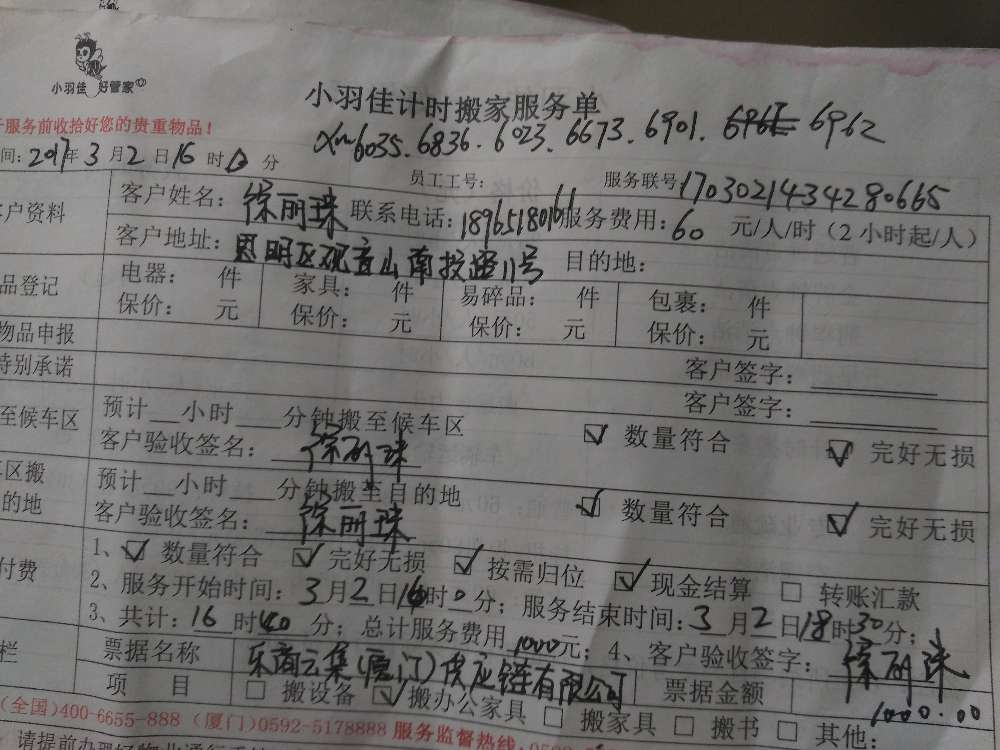 小羽佳 好管家
小羽佳计时搬家服务单
服务前收拾好您的贵重物品！
6035. 6836. 6023. 6673. 6901. 6962
间：2017年3月2日16时0分
员工工号： 服务联号：1703021434280665
客户资料 客户姓名：徐丽珠 联系电话： 服务费用：60 元/人/时（2小时起/人）
客户地址：思明区观音山南投路11号 目的地：
品登记 电器： 件 家具： 件 易碎品： 件 包裹： 件
保价： 元 保价： 元 保价： 元 保价： 元
物品申报 客户签字：
特别承诺 客户签字：
至候车区 预计 小时 分钟搬至候车区
客户验收签名：徐丽珠 ☑ 数量符合 ☑ 完好无损
区搬 预计 小时 分钟搬至目的地
的地 客户验收签名：徐丽珠 ☑ 数量符合 ☑ 完好无损
1、☑ 数量符合 ☑ 完好无损 ☑ 按需归位 ☑ 现金结算 □ 转账汇款
付费 2、服务开始时间：3月2日16时0分；服务结束时间：3月2日18时30分；
3、共计：16时40分；总计服务费用1000元；4、客户验收签字：徐丽珠
栏 票据名称 乐商云集(厦门)供应链有限公司 票据金额 1000.00
项 目 □ 搬设备 ☑ 搬办公家具 □ 搬家具 □ 搬书 □ 其他：
(全国)400-6655-888 (厦门)0592-5178888 服务监督热线：
请提前办理好物业通行手续